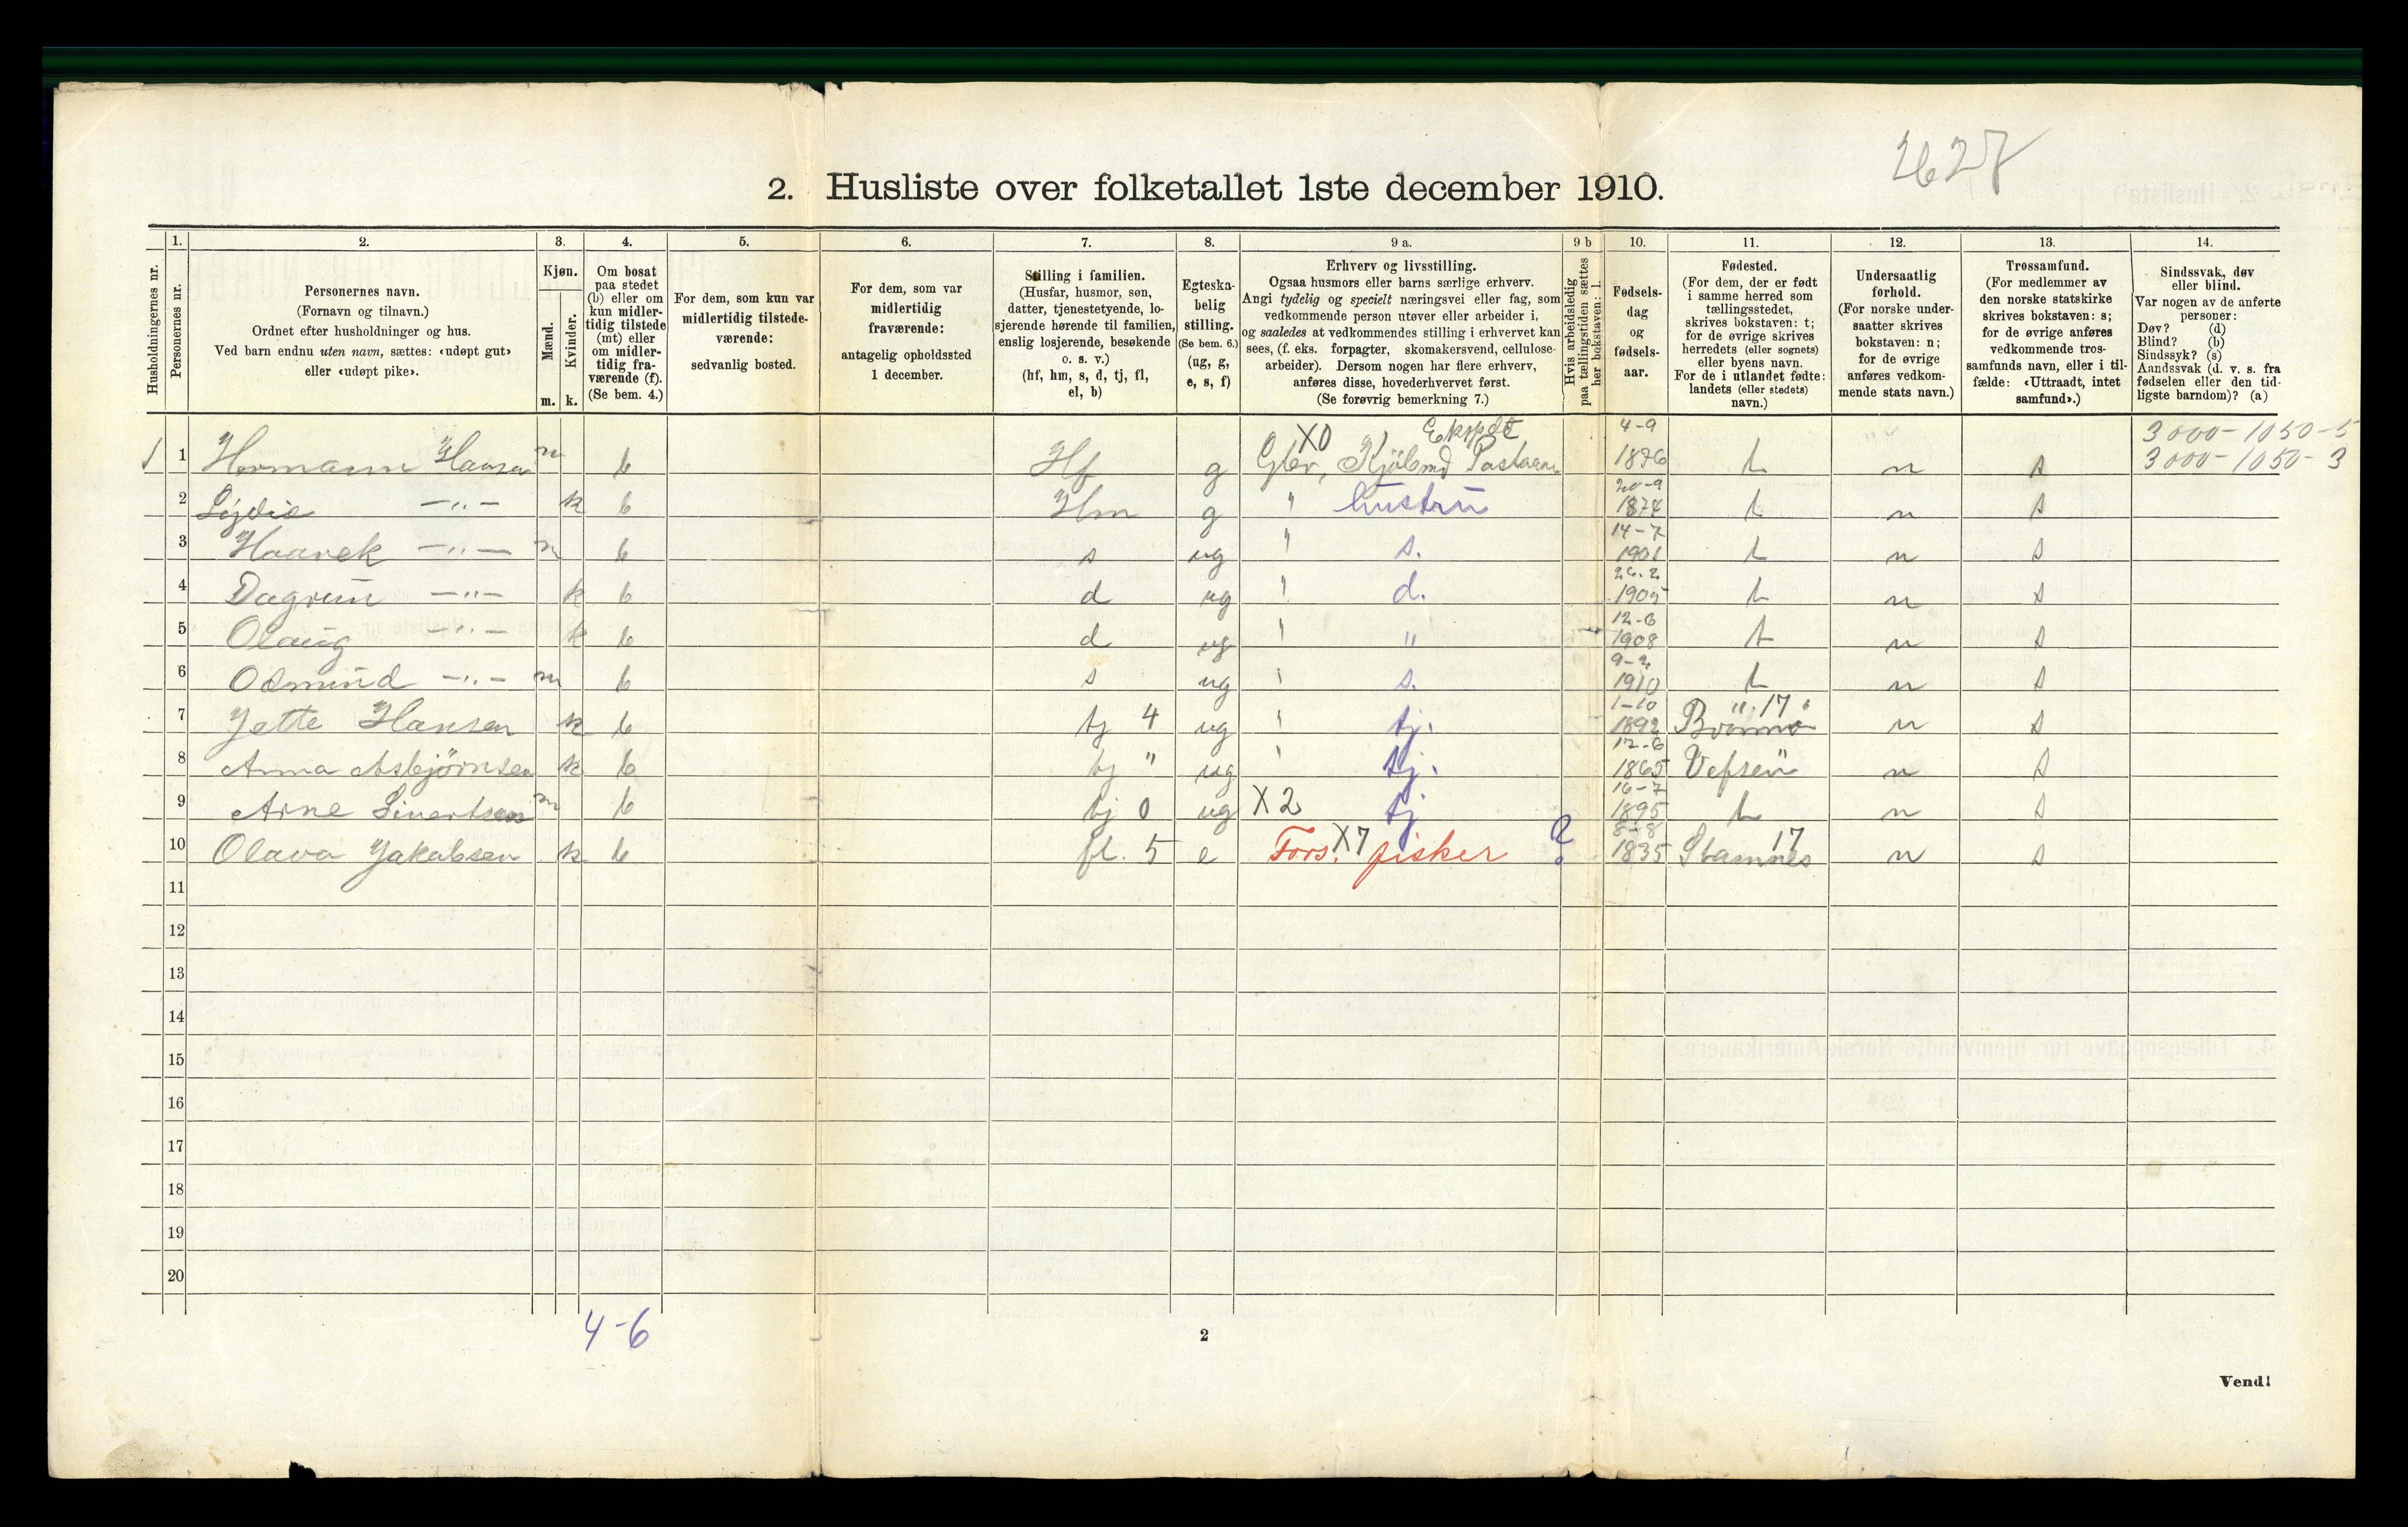 2627
2. Husliste over folketallet 1ste december 1910.
1. 2. 3. 4. 5. 6. 7. 8. 9 a. 9 b 10. 11. 12. 13. 14.
Husholdningernes nr.
Personernes nr.
Personernes navn.
(Fornavn og tilnavn.)
Ordnet efter husholdninger og hus.
Ved barn endnu uten navn, sættes: «udøpt gut»
eller «udøpt pike».
Kjøn.
Mænd.
Kvinder.
m. k.
Om bosat
paa stedet
(b) eller om
kun midler-
tidig tilstede
(mt) eller
om midler-
tidig fra-
værende (f).
(Se bem. 4.)
For dem, som kun var
midlertidig tilstede-
værende:
sedvanlig bosted.
For dem, som var
midlertidig
fraværende:
antagelig opholdssted
1 december.
Stilling i familien.
(Husfar, husmor, søn,
datter, tjenestetyende, lo-
sjerende hørende til familien,
enslig losjerende, besøkende
o. s. v.)
(hf, hm, s, d, tj, fl,
el, b)
Egteska-
belig
stilling.
(Se bem. 6.)
(ug, g,
e, s, f)
Erhverv og livsstilling.
Ogsaa husmors eller barns særlige erhverv.
Angi tydelig og specielt næringsvei eller fag, som
vedkommende person utøver eller arbeider i,
og saaledes at vedkommendes stilling i erhvervet kan
sees, (f. eks. forpagter, skomakersvend, cellulose-
arbeider). Dersom nogen har flere erhverv,
anføres disse, hovederhvervet først.
(Se forøvrig bemerkning 7.)
Hvis arbeidsledig
paa tællingstiden sættes
her bokstaven: l.
Fødsels-
dag
og
fødsels-
aar.
Fødested.
(For dem, der er født
i samme herred som
tællingsstedet,
skrives bokstaven: t;
for de øvrige skrives
herredets (eller sognets)
eller byens navn.
For de i utlandet fødte:
landets (eller stedets)
navn.)
Undersaatlig
forhold.
(For norske under-
saatter skrives
bokstaven: n;
for de øvrige
anføres vedkom-
mende stats navn.)
Trossamfund.
(For medlemmer av
den norske statskirke
skrives bokstaven: s;
for de øvrige anføres
vedkommende tros-
samfunds navn, eller i til-
fælde: «Uttraadt, intet
samfund».)
Sindssvak, døv
eller blind.
Var nogen av de anførte
personer:
Døv? (d)
Blind? (b)
Sindssyk? (s)
Aandssvak (d. v. s. fra
fødselen eller den tid-
ligste barndom)? (a)
X0 4-9 3000-1050-5
1 1 Hermann Hansen m b Hf g Kjøbmd 1876 t n s 3000-1050-3
20-9
2 -"- k b Hm g " hustru 1874 t n s
14-7
3 Haarek -"- m b s ug " s. 1901 t n s
26-2
4 Dagrun -"- k b d ug " d. 1905 t n s
12-6
5 Olaug -"- k b d ug " " 1908 t n s
9-2
6 Odmund -"- m b s ug " s. 1910 t n s
1-10 " 17 "
7 Jette Hansen k b tj 4 ug " tj. 1892 Brønnø n s
12-6
8 Anna Asbjørnsen k b tj " ug " tj. 1865 Vefsen n s
16-7
9 Arne Sivertsen m b tj 0 ug X2 tj 1895 t n s
8-8 17
10 Olava Jakobsen k b fl. 5 e Fors. X7 fisker ? 1835 Stamnes n s
11
12
13
14
15
16
17
18
19
20
4-6
2
Vend!